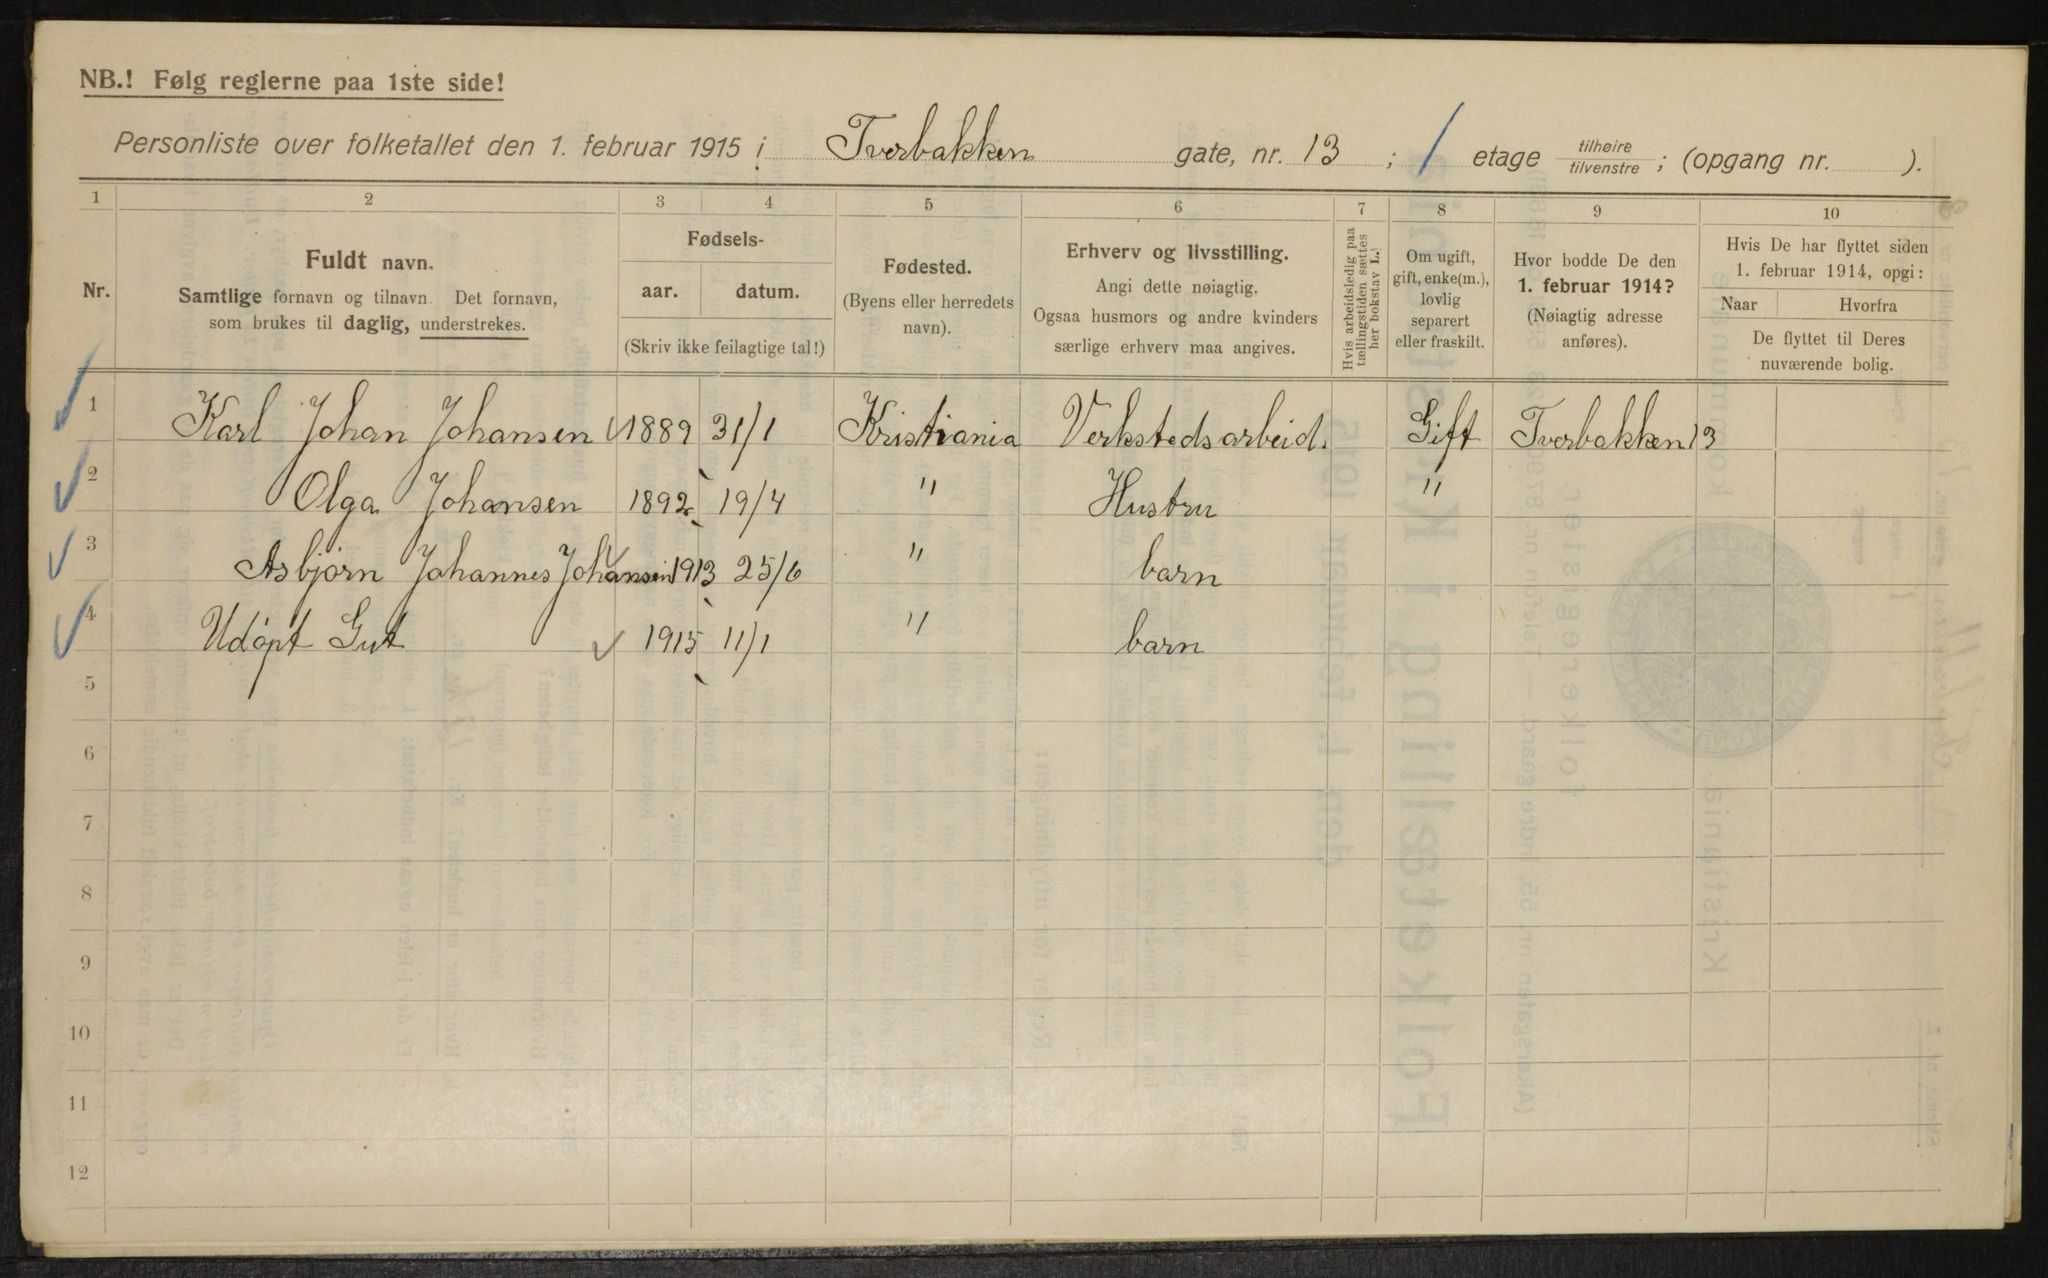 NB.! Følg reglerne paa 1ste side!
Personliste over folketallet den 1. februar 1915 i Tverbakken gate, nr. 13 ; / etage tilhøire tilvenstre ; (opgang nr. ).
1 2 3 4 5 6 7 8 9 10
Nr.
Fuldt navn.
Samtlige fornavn og tilnavn. Det fornavn,
som brukes til daglig, understrekes.
Fødsels-
aar. datum.
(Skriv ikke feilagtige tal!)
Fødested.
(Byens eller herredets
navn).
Erhverv og livsstilling.
Angi dette nøiagtig.
Ogsaa husmors og andre kvinders
særlige erhverv maa angives.
Hvis arbeidsledig paa
tællingstiden sættes
her bokstav L.!
Om ugift,
gift, enke(m.),
lovlig
separert
eller fraskilt.
Hvor bodde De den
1. februar 1914?
(Nøiagtig adresse
anføres).
Hvis De har flyttet siden
1. februar 1914, opgi:
Naar Hvorfra
De flyttet til Deres
nuværende bolig.
1 Karl Johan Johansen 1889 31/1 Kristiania Verkstedsarbeid. Gift Tverbakken 13
2 Olga Johansen 1892 19/4 " Hustru "
3 Asbjørn Johannes Johansen 1913 25/6 " barn
4 Udøpt Gut 1915 11/1 " barn
5
6
7
8
9
10
11
12